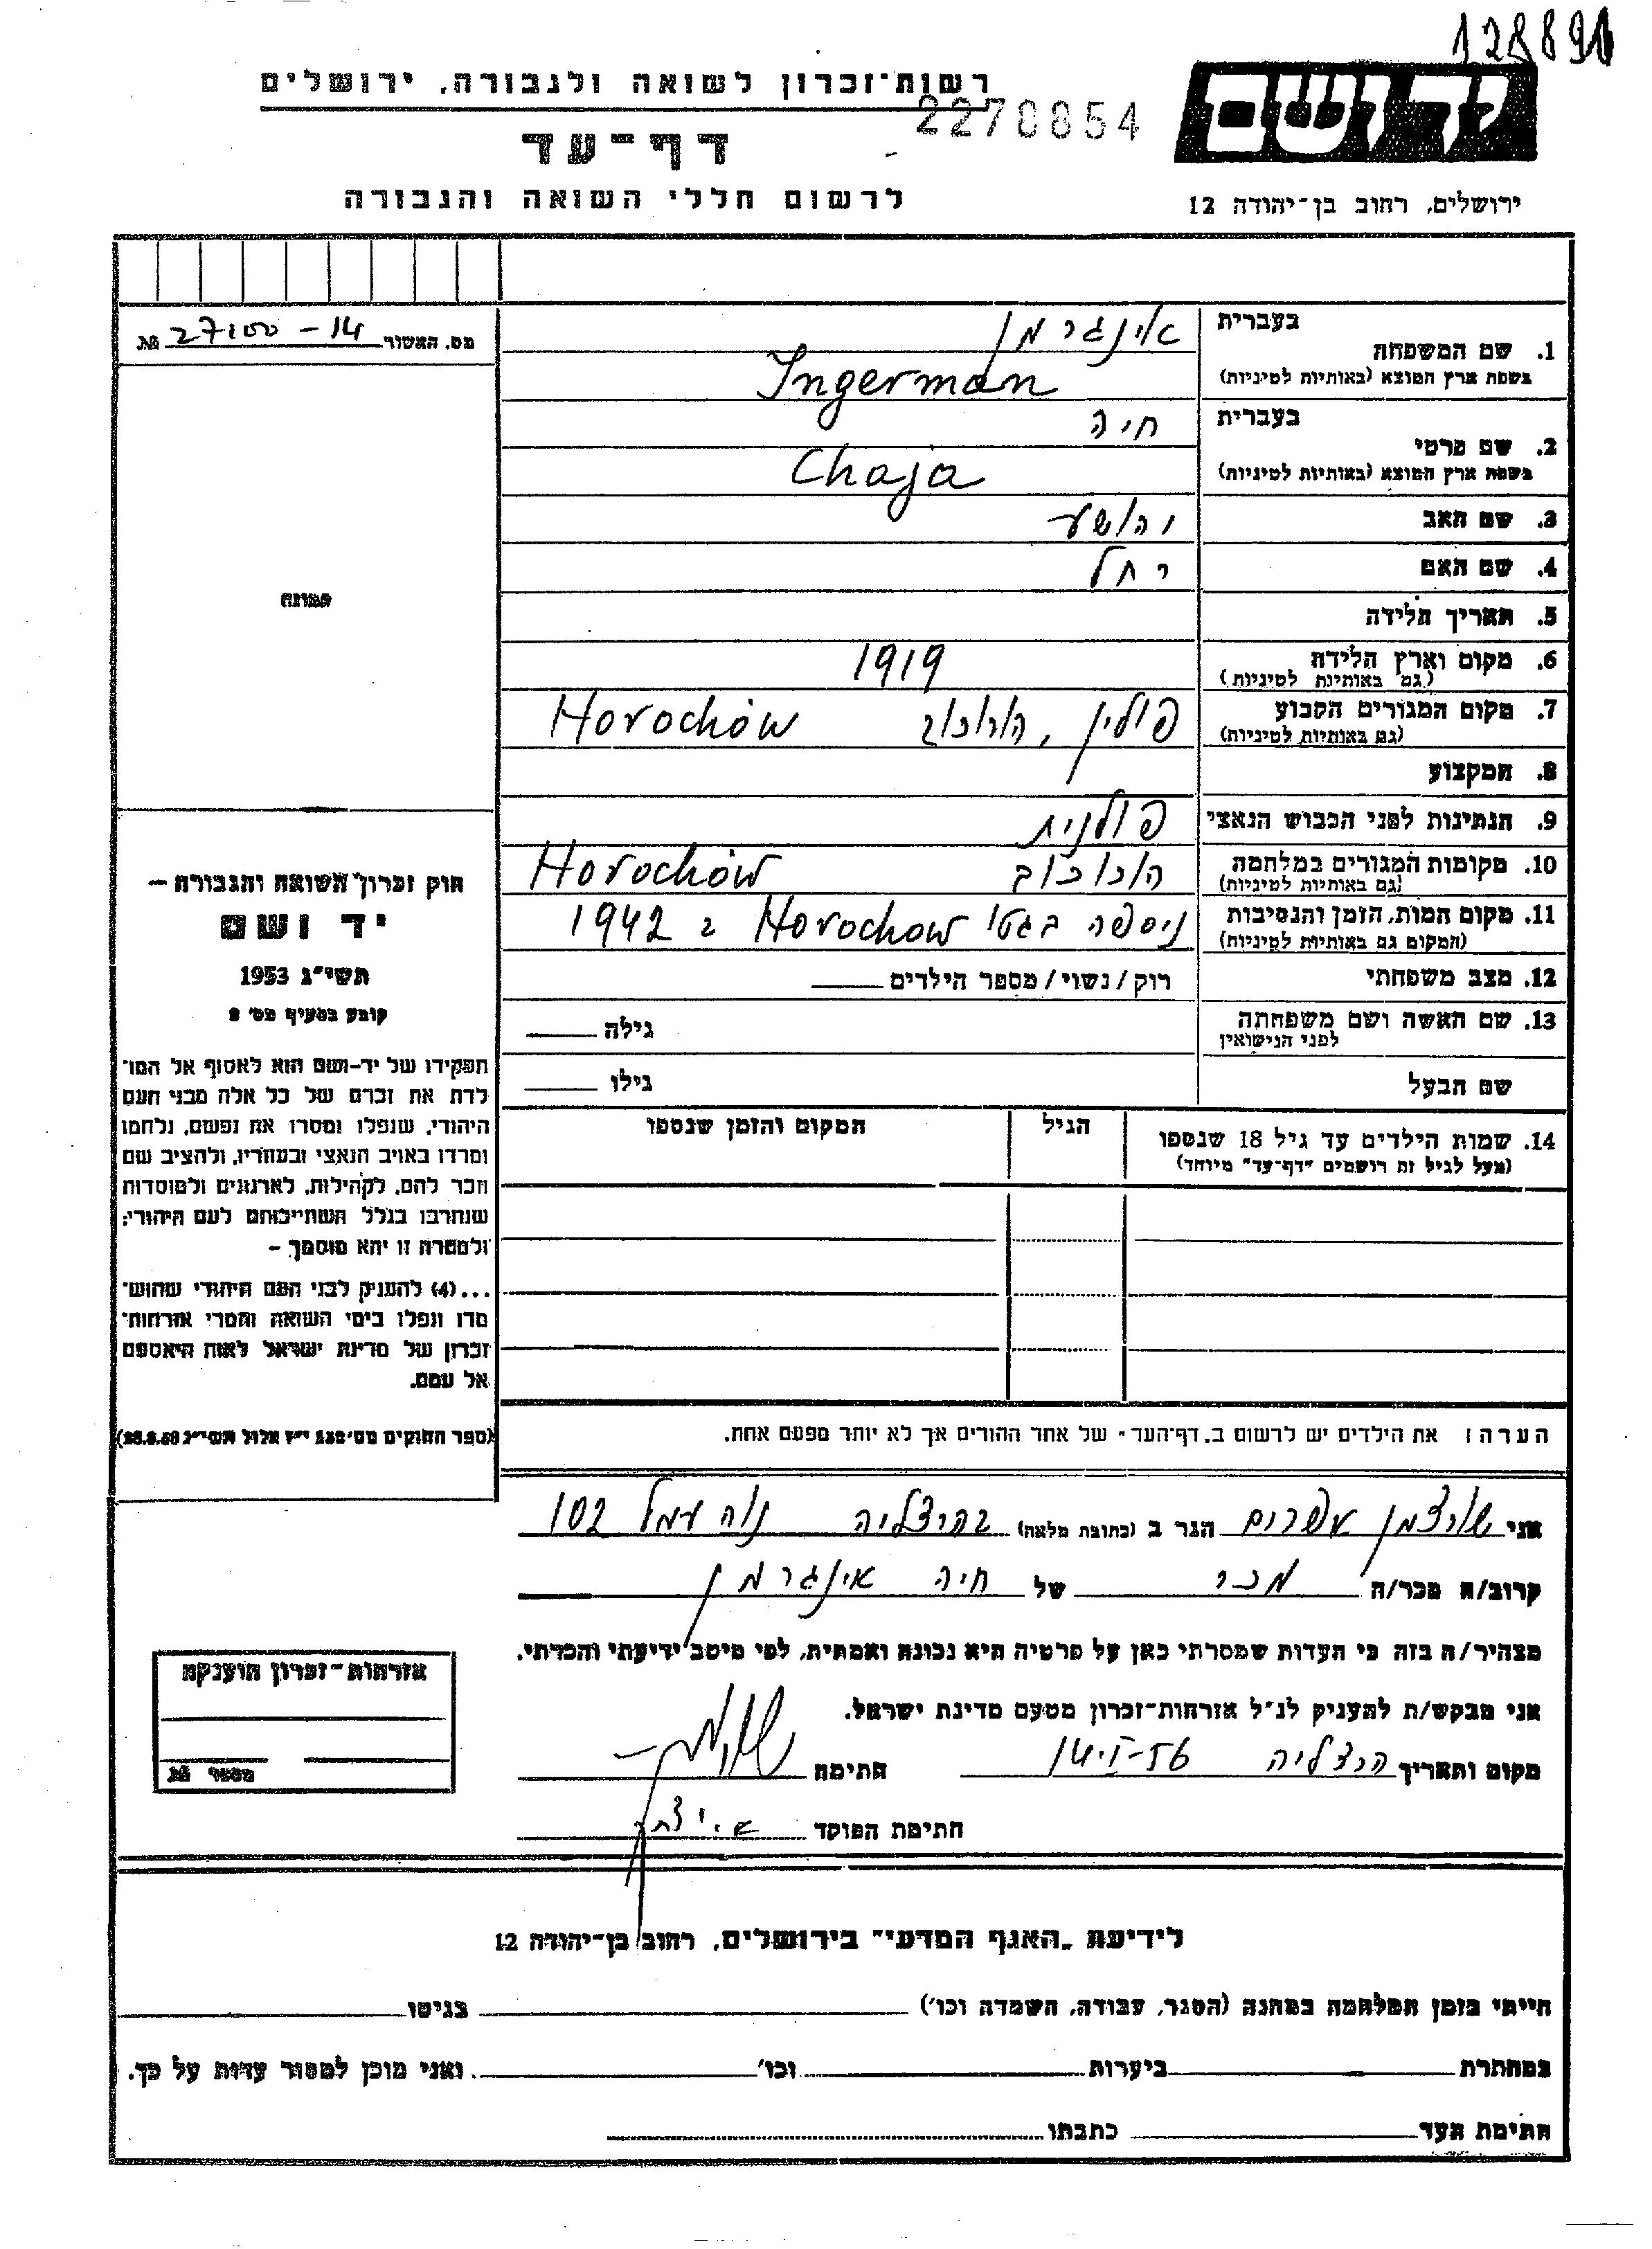 128891
רשות־זכרון לשואה ולגבורה, ירושלים
2270854
יד ושם
דף־עד
לרשום חללי השואה והגבורה
ירושלים, רחוב בן־יהודה 12
מס. האשור 14 – 27100 №
בעברית אינגרמן
1. שם המשפחה
בשפת ארץ המוצא (באותיות לטיניות) Ingerman
בעברית חיה
2. שם פרטי
בשפת ארץ המוצא (באותיות לטיניות) Chaja
3. שם האב יהושע
4. שם האם רחל
תמונה
5. תאריך הלידה
6. מקום וארץ הלידה 1919
(גם באותיות לטיניות)
7. מקום המגורים הקבוע פולין, הורוכוב Horochów
(גם באותיות לטיניות)
8. המקצוע
9. הנתינות לפני הכבוש הנאצי פולנית
10. מקומות המגורים במלחמה הורוכוב Horochów
(גם באותיות לטיניות)
11. מקום המות, הזמן והנסיבות ניספתה בגטו Horochow ב 1942
(המקום גם באותיות לטיניות)
12. מצב משפחתי רוק/נשוי/מספר הילדים
13. שם האשה ושם משפחתה גילה
לפני הנישואין
שם הבעל גילו
14. שמות הילדים עד גיל 18 שנספו הגיל המקום והזמן שנספו
(מעל לגיל זה רושמים "דף־עד" מיוחד)
חוק זכרון השואה והגבורה –
יד ושם
תשי"ג 1953
קובע בסעיף מס' 2
תפקידו של יד־ושם הוא לאסוף אל המו־
לדת את זכרם של כל אלה מבני העם
היהודי, שנפלו ומסרו את נפשם, נלחמו
ומרדו באויב הנאצי ובעוזריו, ולהציב שם
וזכר להם, לקהילות, לארגונים ולמוסדות
שנחרבו בגלל השתייכותם לעם היהודי;
ולמטרה זו יהא מוסמך –
...(4) להעניק לבני העם היהודי שהוש־
מדו ונפלו בימי השואה והמרי אזרחות־
זכרון של מדינת ישראל לאות היאספם
אל עמם.
(ספר החוקים מס' 132 י"ז אלול תשי"ג 28.8.53)
הערה: את הילדים יש לרשום ב"דף־העד" של אחד ההורים אך לא יותר מפעם אחת.
אני שורצמן אפרים הגר ב (כתובת מלאה) בהרצליה נוה עמל 102
קרוב/ה מכר/ה מכר של חיה אינגרמן
מצהיר/ה בזה כי העדות שמסרתי כאן על פרטיה היא נכונה ואמתית, לפי מיטב ידיעתי והכרתי.
אני מבקש/ת להעניק לנ"ל אזרחות־זכרון מטעם מדינת ישראל.
מקום ותאריך הרצליה 14.I-56 חתימה
חתימת הפוקד
אזרחות־זכרון הוענקה
מספר №
לידיעת "האגף המדעי" בירושלים, רחוב בן־יהודה 12
חייתי בזמן המלחמה במחנה (הסגר, עבודה, השמדה וכו') בגיטו
במחתרת ביערות וכו' ואני מוכן למסור עדות על כך.
חתימת העד כתבתו